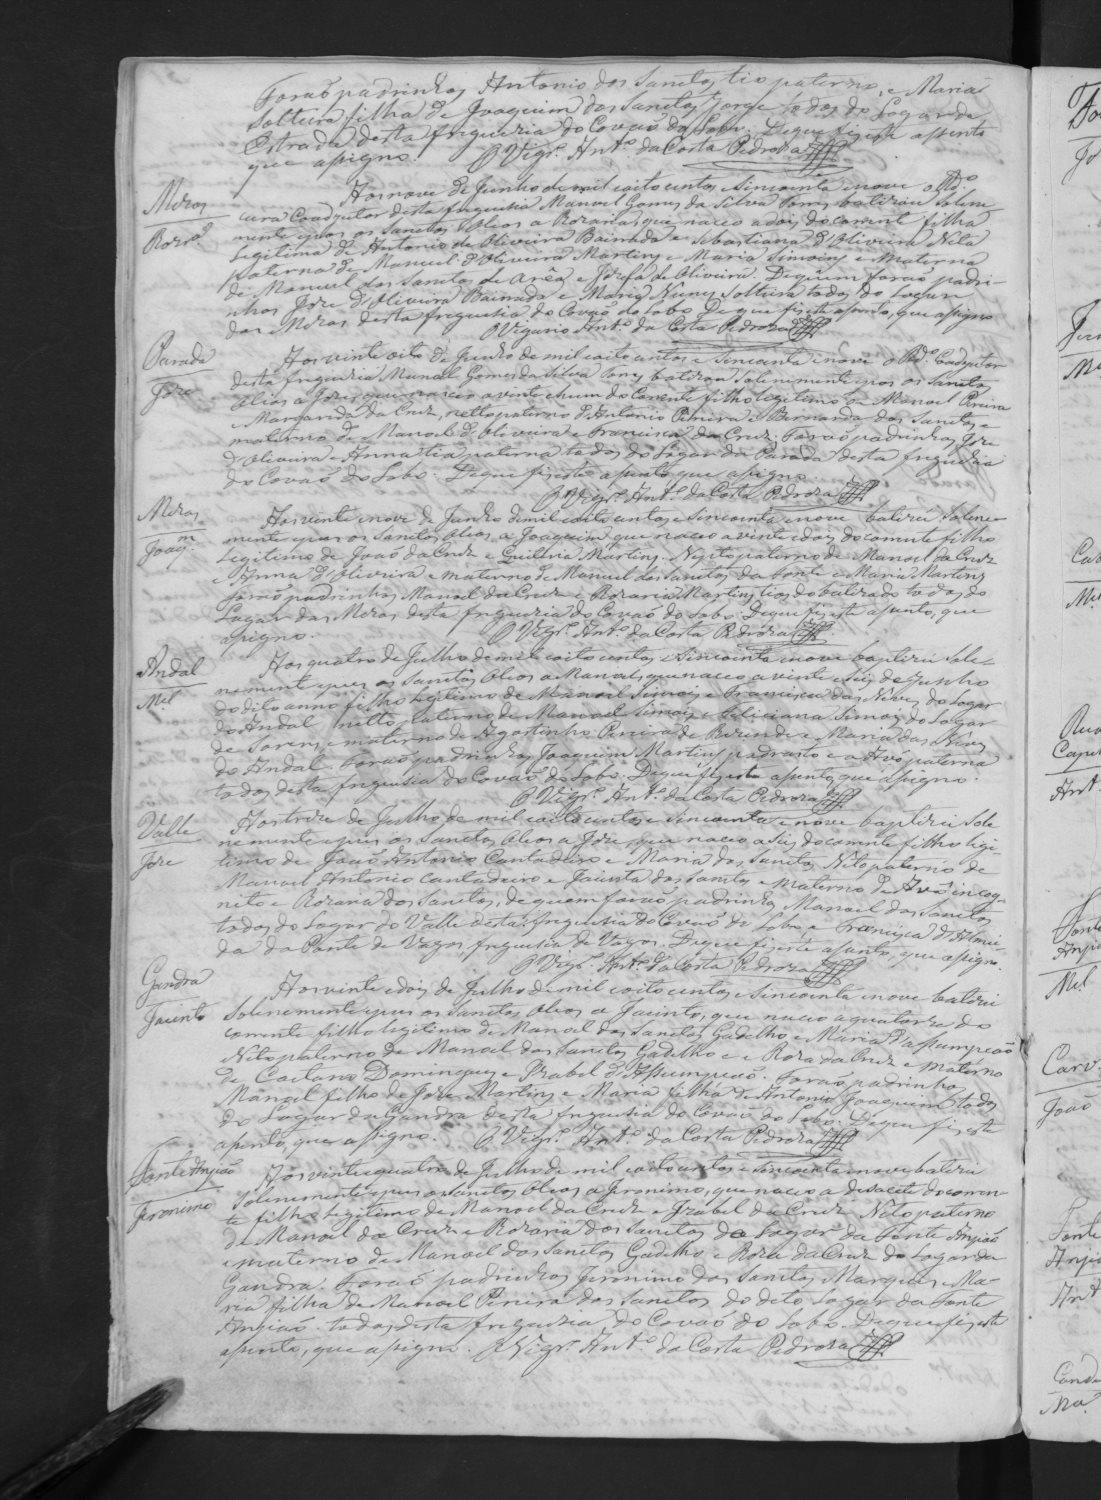 Foraõ padrinhos Antonio dos Santos tio paterno, e Maria
Solteira filha de Joaquim dos Santos Jorge todos do Lugar da
Estrada desta freguezia do Covaõ do Lobo. De que fiz este aſsento
que aſsigno. O Vigr.º Ant.º da Costa Pedroza
Meras
Rozr.ª
Aos nove de Junho de mil oito centos e sincoenta e nove o R.do
cura Coadjutor desta freguezia Manoel Gomes da Silva Pons batizou Solem
nemente e pos os Santos Oleos a Rozaria, que naceo a dois do corrente filha
legitima de Antonio de Oliveira Bairrada e Sebastiana d'Oliveira Neta
paterna de Manuel d'Oliveira Martins e Maria Simoins e materna
de Manuel dos Santos de Arêa e Jozefa de Oliveira. De quem foraõ padri-
nhos Joze d'Oliveira Bairrada e Maria Nunes Solteira todos do Lugar
das Meras desta freguezia do Covaõ do Lobo. De que fiz este aſsento, que aſsigno
O Vigario Ant.º da Costa Pedroza
Parada
Joze
Aos vinte oito de Junho de mil oito centos e sincoenta e nove o Rd.º Coadjutor
desta freguezia Manoel Gomes da Silva Pons batizou Solemnemente e pos os Santos
Oleos a Joze, que naceo a vinte e hum do corrente filho legitimo de Manoel Pereira
e Margarida da Cruz, netto paterno d'Antonio Pereira e Bernarda dos Santos e
materno de Manoel d'Oliveira e Francisca da Cruz. Foraõ padrinhos Joze
d'Oliveira e Anna tia paterna todos do Lugar da Parada desta freguezia
do Covaõ do Lobo. De que fiz este aſsento, que aſsigno.
O Vigr.º Ant.º da Costa Pedroza
Meras
Joaq.m
Aos vinte e nove de Junho de mil oito centos e sincoenta e nove batizei Solene-
mente e pus os Santos Oleos a Joaquim que naceo a vinte e dois do corrente filho
legitimo de Joaõ da Cruz e Quiteria Martins. Neto paterno de Manoel da Cruz
e Anna d'Oliveira e materno de Manuel dos Santos da Fonte e Maria Martins
foraõ padrinhos Manoel da Cruz e Rozaria Martins tios do batizado todos do
Lugar das Meras desta freguezia do Covaõ do Lobo. De que fiz este aſsento, que
aſsigno. O Vigr.º Ant.º da Costa Pedroza
Andal
M.el
Aos quatro de Julho de mil oito centos e sincoenta e nove baptizei Sole-
nemente e pus os Santos Oleos a Manoel, que naceo a vinte e seis de Junho
do dito anno filho legitimo de Manoel Simois e Francisca das Neves do Lugar
do Andal netto paterno de Manoel Simois e Feliciana Simois do Lugar
de Sorens, e materno de Agostinho Pereira de Rezende e Maria das Neves
do Andal. Foraõ padrinhos Joaquim Martins padrasto e a Avó paterna
todos desta freguezia do Covaõ do Lobo. De que fiz este aſsento, que aſsigno.
O Vigr.º Ant.º da Costa Pedroza
Valle
Joze
Aos treze de Julho de mil oito centos e sincoenta e nove baptizei Sole
nemente e pus os Santos Oleos a Joze, que naceo a seis do corrente filho legi-
timo de Joaõ Antonio Cantadeiro e Maria dos Santos Neto paterno de
Manoel Antonio Cantadeiro e Jacinta dos Santos e materno de Avó incog-
nito e Rozaria dos Santos, de quem foraõ padrinhos Manoel dos Santos
todos do Lugar do Valle desta freguezia do Covaõ do Lobo, e Francisca d'Almei-
da da Ponte de Vagos, freguezia de Vagos. De que fiz este aſsento, que aſsigno.
O Vigr.º Ant.º da Costa Pedroza
Gandra
Jacinto
Aos vinte e dois de Julho de mil oito centos e sincoenta e nove batizei
Solenemente e pus os Santos Oleos a Jacinto, que naceo a quatorze do
corrente filho legitimo de Manoel dos Santos Gadelho e Maria d'Aſsumpçaõ
Neto paterno de Manoel dos Santos Gadelho e e Roza da Cruz e materno
de Caetano Domingues e Izabel d'Aſsumpçaõ. Foraõ padrinhos
Manoel filho de Joze Martins e Maria filha de Antonio Joaquim todos
do Lugar da Gandra desta freguezia do Covaõ do Lobo. De que fiz este
aſsento, que aſsigno. O Vigr.º Ant.º da Costa Pedroza
Fonte Anjiaõ
Jeronimo
Aos vinte e quatro de Julho de mil oito centos e sincoenta e nove batizei
Solenemente e pus os Santos Oleos a Jeronimo, que naceo a desasete do corren-
te filho legitimo de Manoel da Cruz e Izabel da Cruz Neto paterno
de Manoel da Cruz e Rozaria dos Santos do Lugar da Fonte Anjiaõ
e materno de Manoel dos Santos Gadelho e Roza da Cruz do Lugar da
Gandra. Foraõ padrinhos Jeronimo dos Santos Marques e Ma-
ria filha de Manoel Pereira dos Santos do dito Lugar da Fonte
Anjiaõ todos desta freguezia do Covaõ do Lobo. De que fiz este
aſsento, que aſsigno. O Vigr.º Ant.º da Costa Pedroza